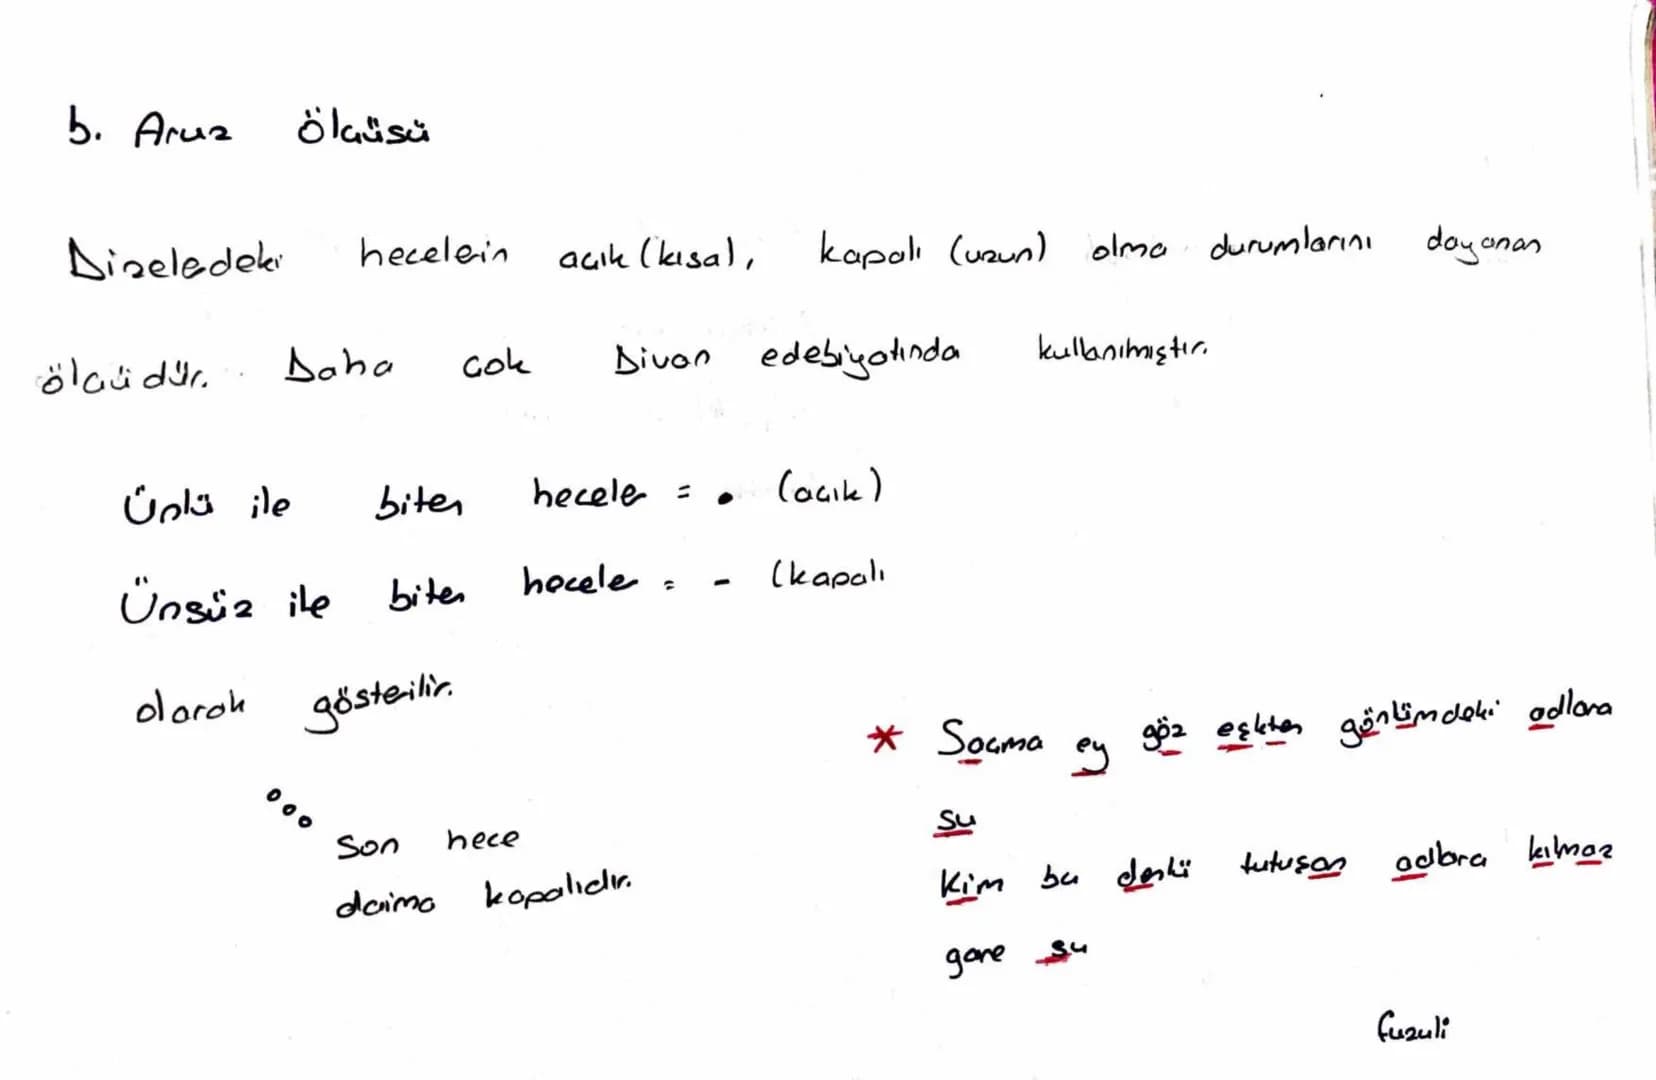 b. Aruz ölçüsü
Dizeledeki hecelein açık (kısal, kapalı (uzun) olma durumlarını dayanan
ölçüdür. Daha çok Divan edebiyatında kullanılmıştır.
Ünlü ile biten hecele = • (açık)
Ünsüz ile biten hecele = - (kapalı
olarak gösteilir.
Son hece
daima kapalıdır.
* Saçma ey göz eşkten gönlümdeki odlara
su
Kim bu denlü tutuşan odlara kılmaz
çare su
fuzuli